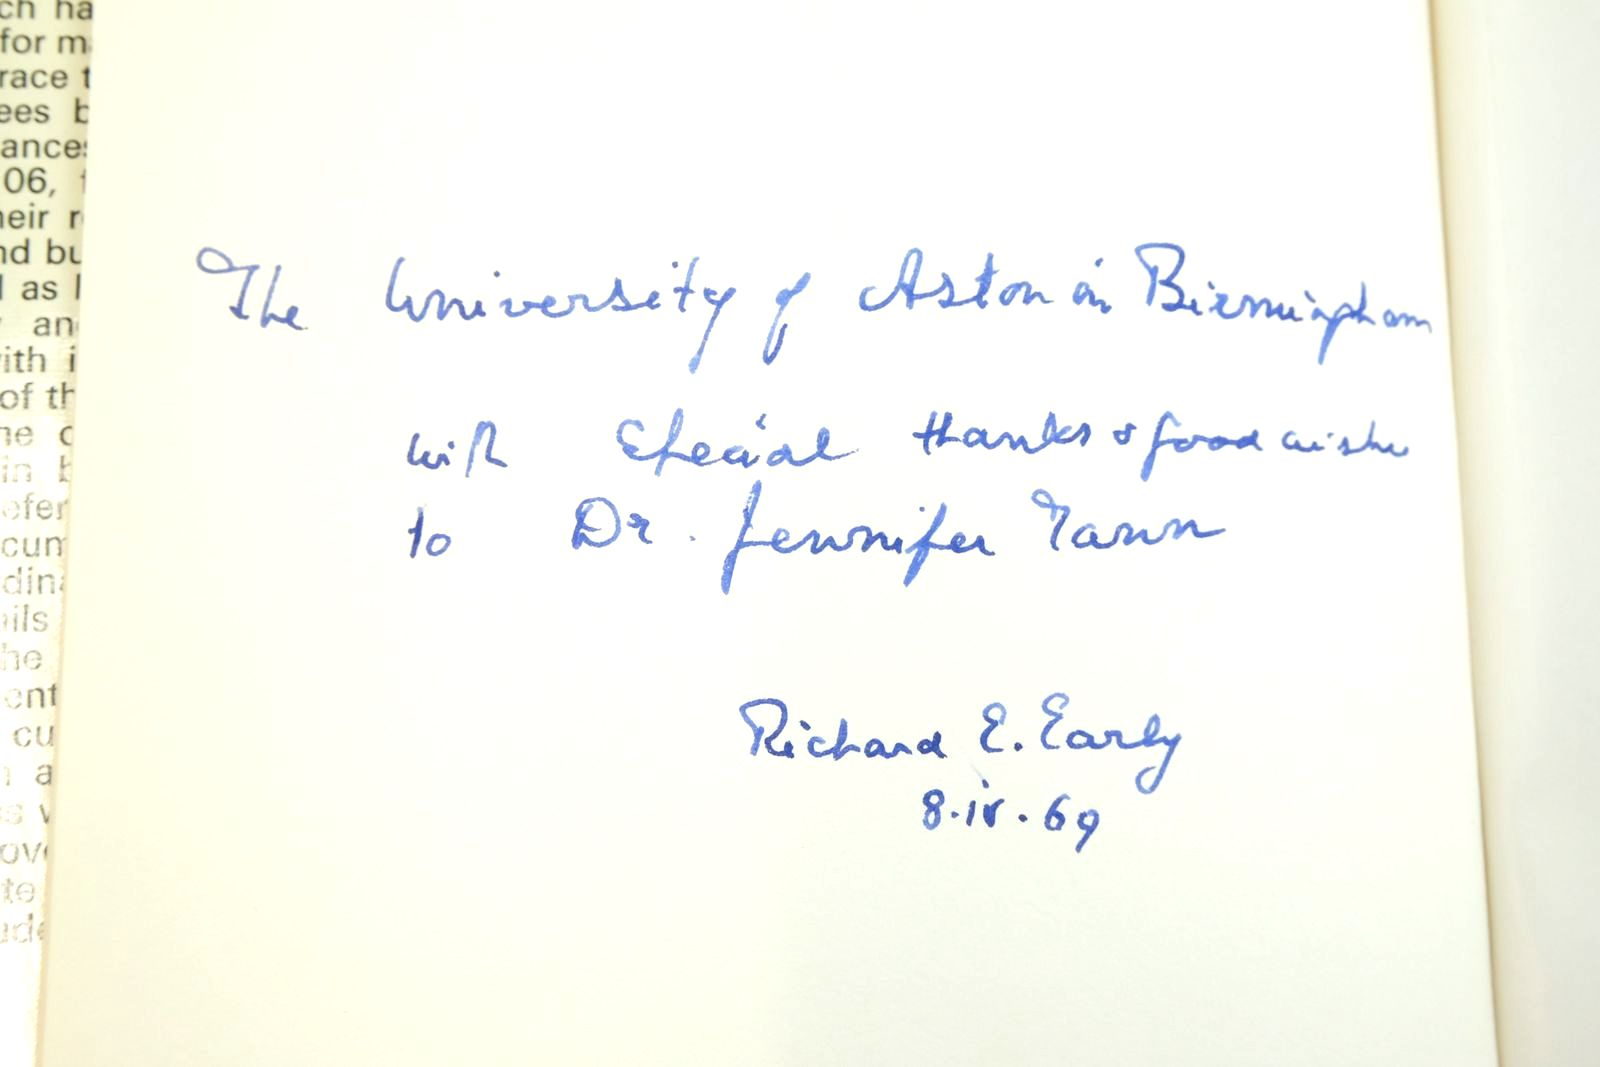 ch ha
for m
race t
ees b
ances
06, f
heir r
nd bu
l as l
y an
with i
of th
ne c
in b
efer
cum
dina
ails
he
ent
cu
n a
s v
ove
te
ude
The University of Aston in Birmingham
with special thanks & good wishes
to Dr. Jennifer Tann
Richard E. Early
8.iv.69